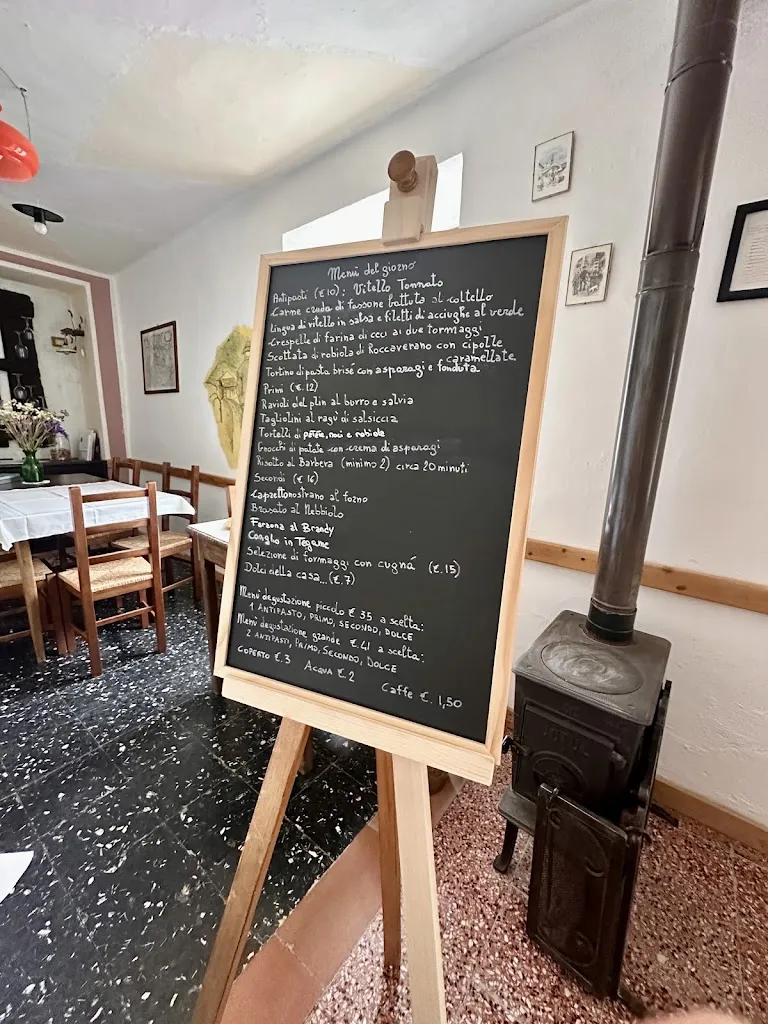 Menù del giorno
Antipasti (€ 10): Vitello Tonnato
Carne cruda di fassone battuta al coltello
Lingua di vitello in salsa e filetti di acciughe al verde
Crespelle di farina di ceci ai due formaggi
Scottata di robiola di Roccaverano con cipolle
caramellate
Tortino di pasta brisé con asparagi e fonduta
Primi (€. 12)
Ravioli del plin al burro e salvia
Tagliolini al ragù di salsiccia
Tortelli di patate, noci e robiola
Gnocchi di patate con crema di asparagi
Risotto al Barbera (minimo 2) circa 20 minuti
Secondi (€ 16)
Capretto nostrano al forno
Brasato al Nebbiolo
Faraona al Brandy
Coniglio in Tegame
Selezione di formaggi con cugná (€. 15)
Dolci della casa... (€. 7)
Menù degustazione piccolo € 35 a scelta:
1 ANTIPASTO, PRIMO, SECONDO, DOLCE
Menù degustazione grande €. 41 a scelta:
2 ANTIPASTI, PRIMO, SECONDO, DOLCE
COPERTO €. 3 ACQUA €. 2
Caffe €. 1,50
JØTUL